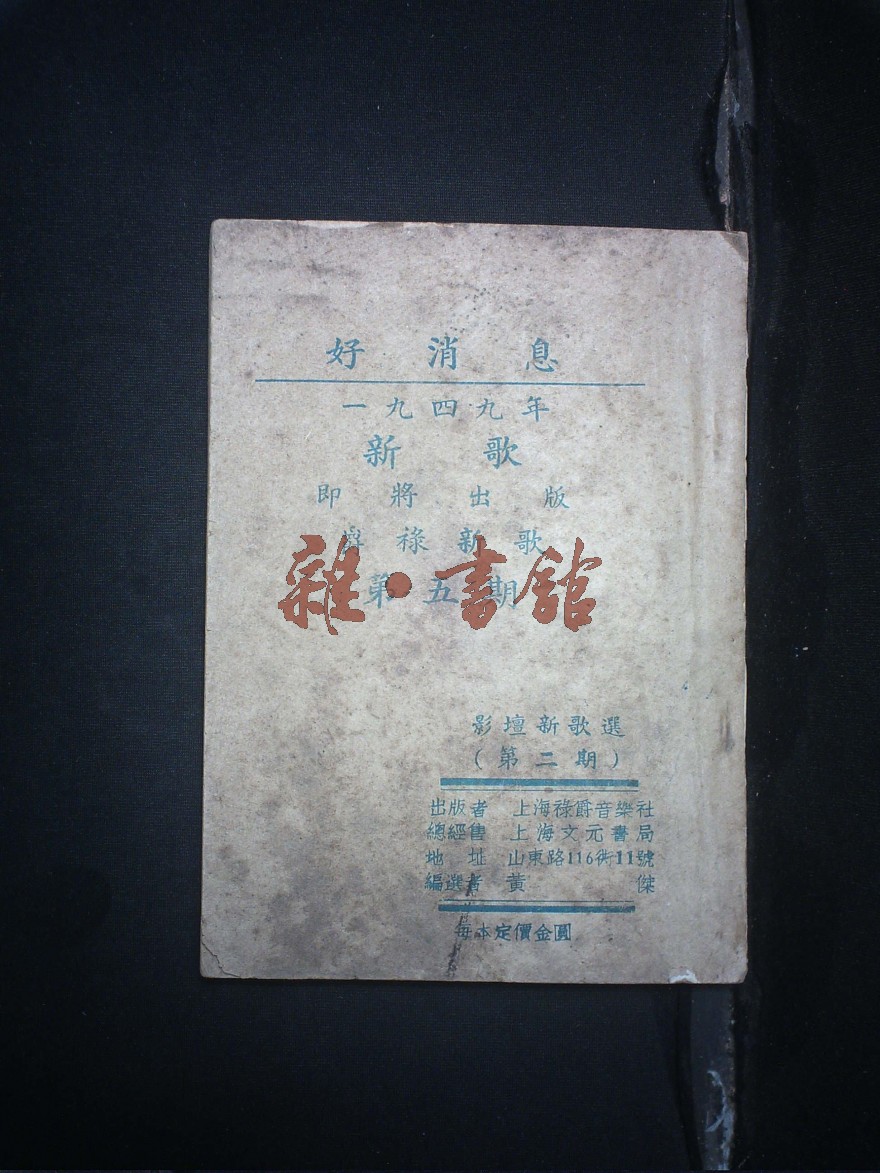 好消息
一九四九年
新歌
即將出版
爵祿新歌
第五期
雜·書館
影壇新歌選
(第二期)
出版者 上海祿爵音樂社
總經售 上海文元書局
地址 山東路116衖11號
編選者 黃傑
每本定價金圓